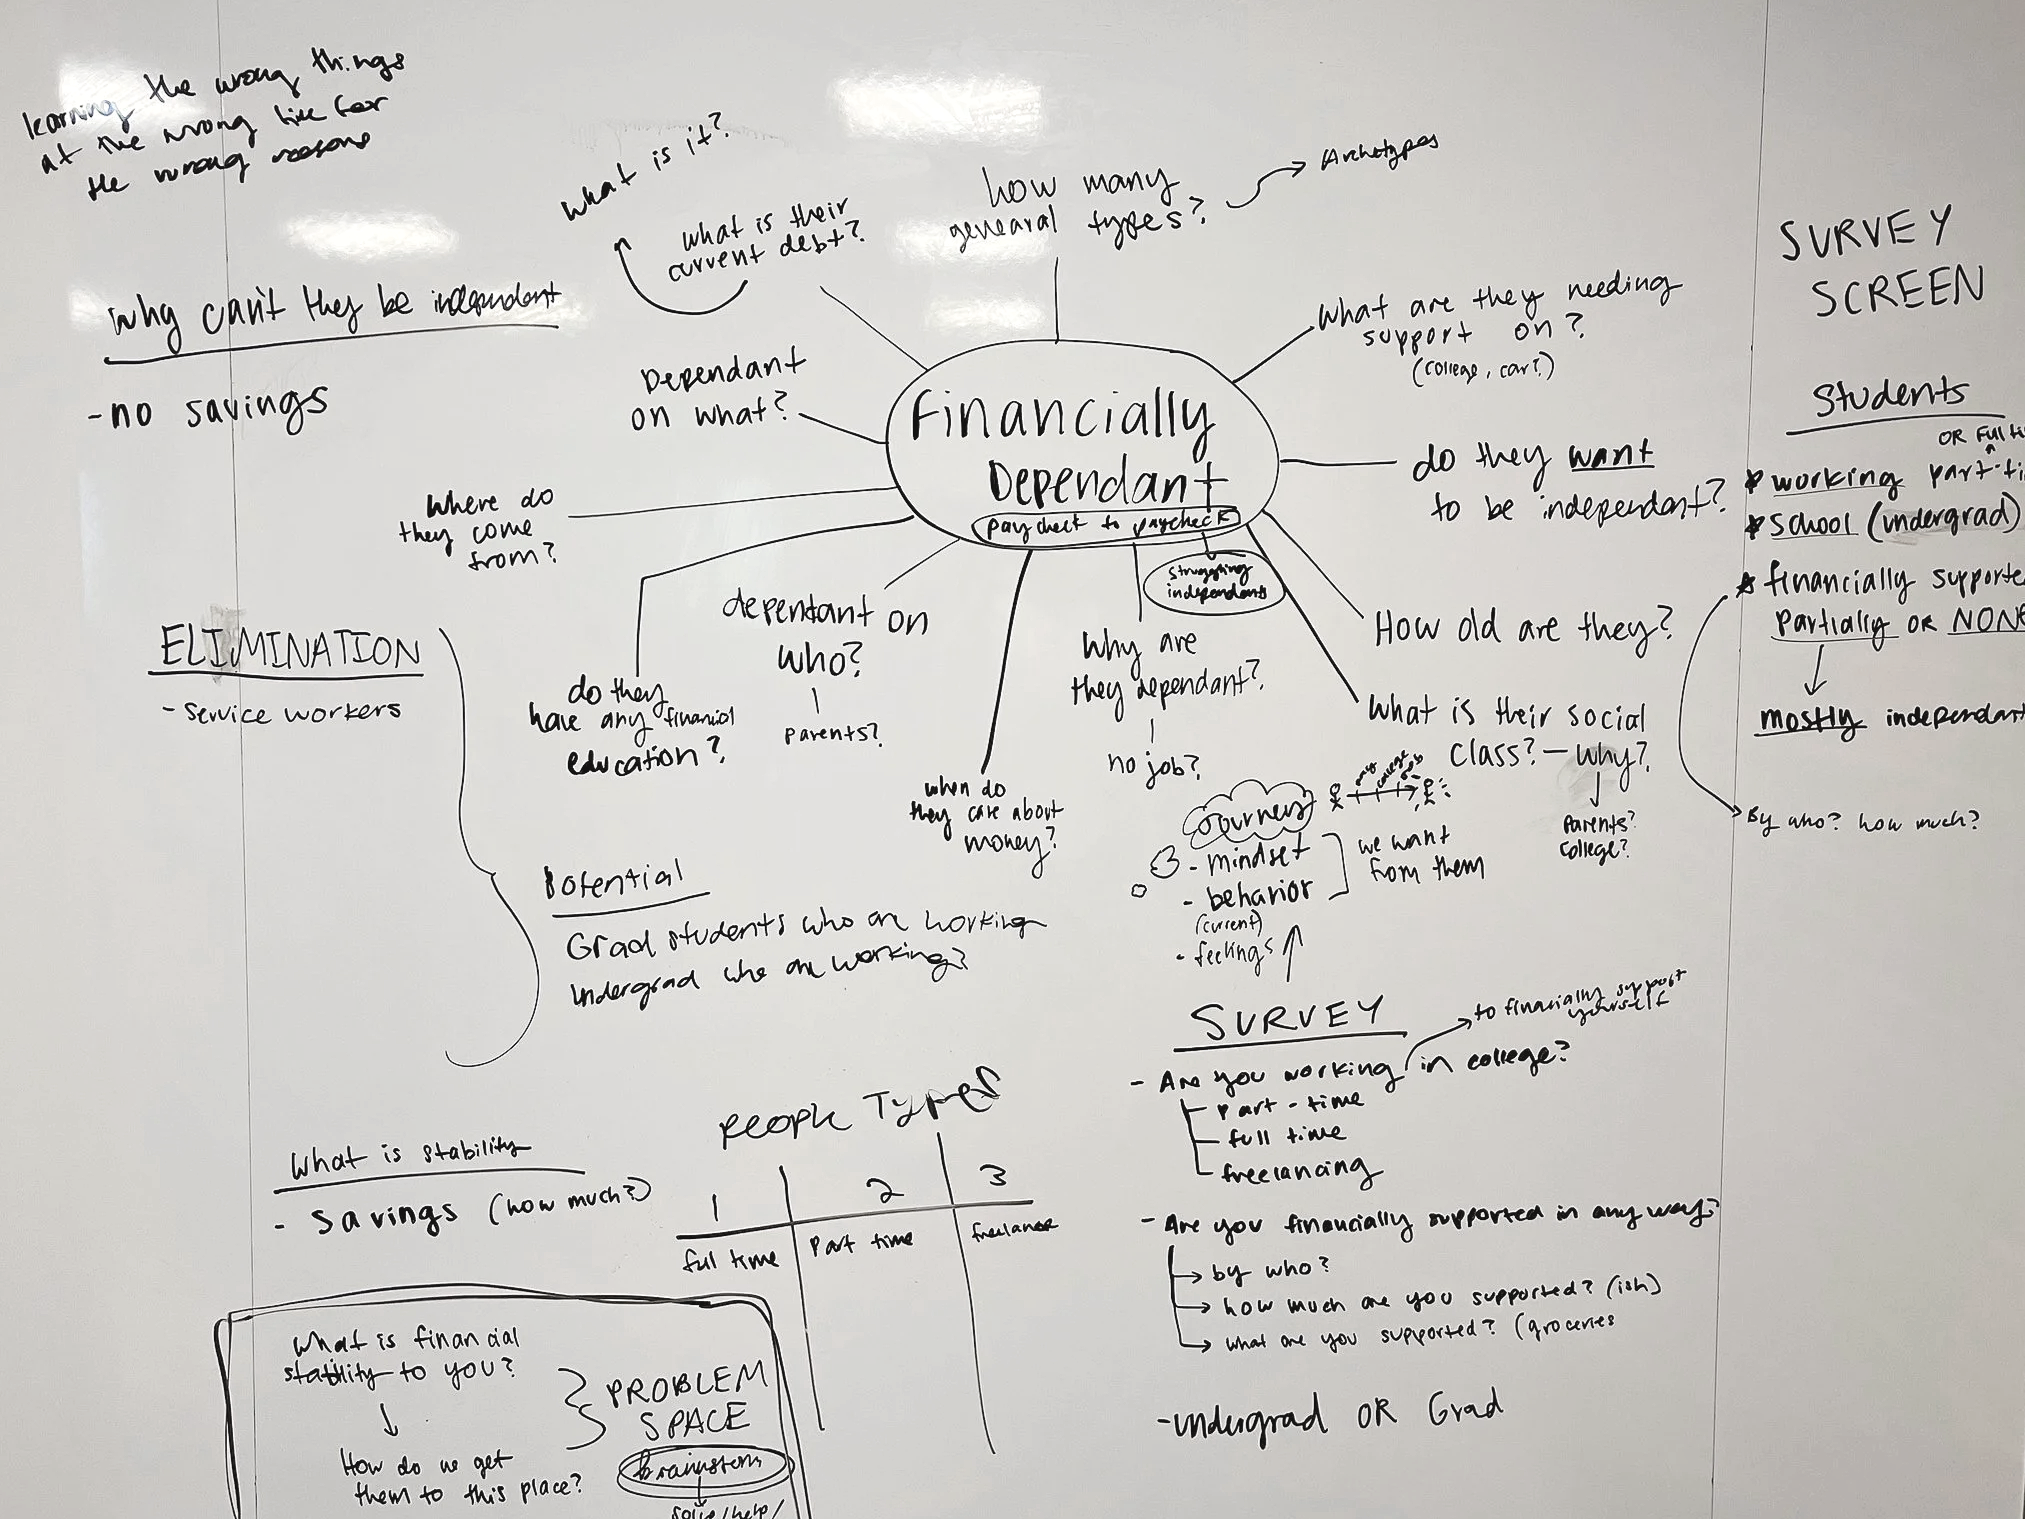 learning the wrong things
at the wrong time for
the wrong reasons
why can't they be independent
- no savings
what is it?
what is their
current debt?
how many
genearal types?
Archetypes
What are they needing
support on?
(college, car?)
Dependant
on what?
Financially
Dependant
paycheck to paycheck
struggling
independents
do they want
to be independant?
where do
they come
from?
do they
have any financial
education?
dependant on
who?
parents?
when do
they care about
money?
Why are
they dependant?
no job?
How old are they?
What is their social
class? - why?
parents?
college?
SURVEY
SCREEN
Students
OR full ti
* working part-ti
* school (undergrad)
* financially supporte
partially OR NONE
mostly independant
By who? how much?
ELIMINATION
- service workers
Potential
Grad students who are working
undergrad who are working?
Journey
college
job
- mindset
- behavior
(current)
- feelings
we want
from them
SURVEY
to financially support
yourself
- Are you working in college?
part-time
full time
freelancing
- Are you financially supported in any way?
by who?
how much are you supported? (ish)
what are you supported? (groceries
- undergrad OR Grad
What is stability
- savings (how much?)
People Types
1 2 3
full time part time freelance
What is financial
stability to you?
How do we get
them to this place?
PROBLEM
SPACE
brainstorm
solve/help/